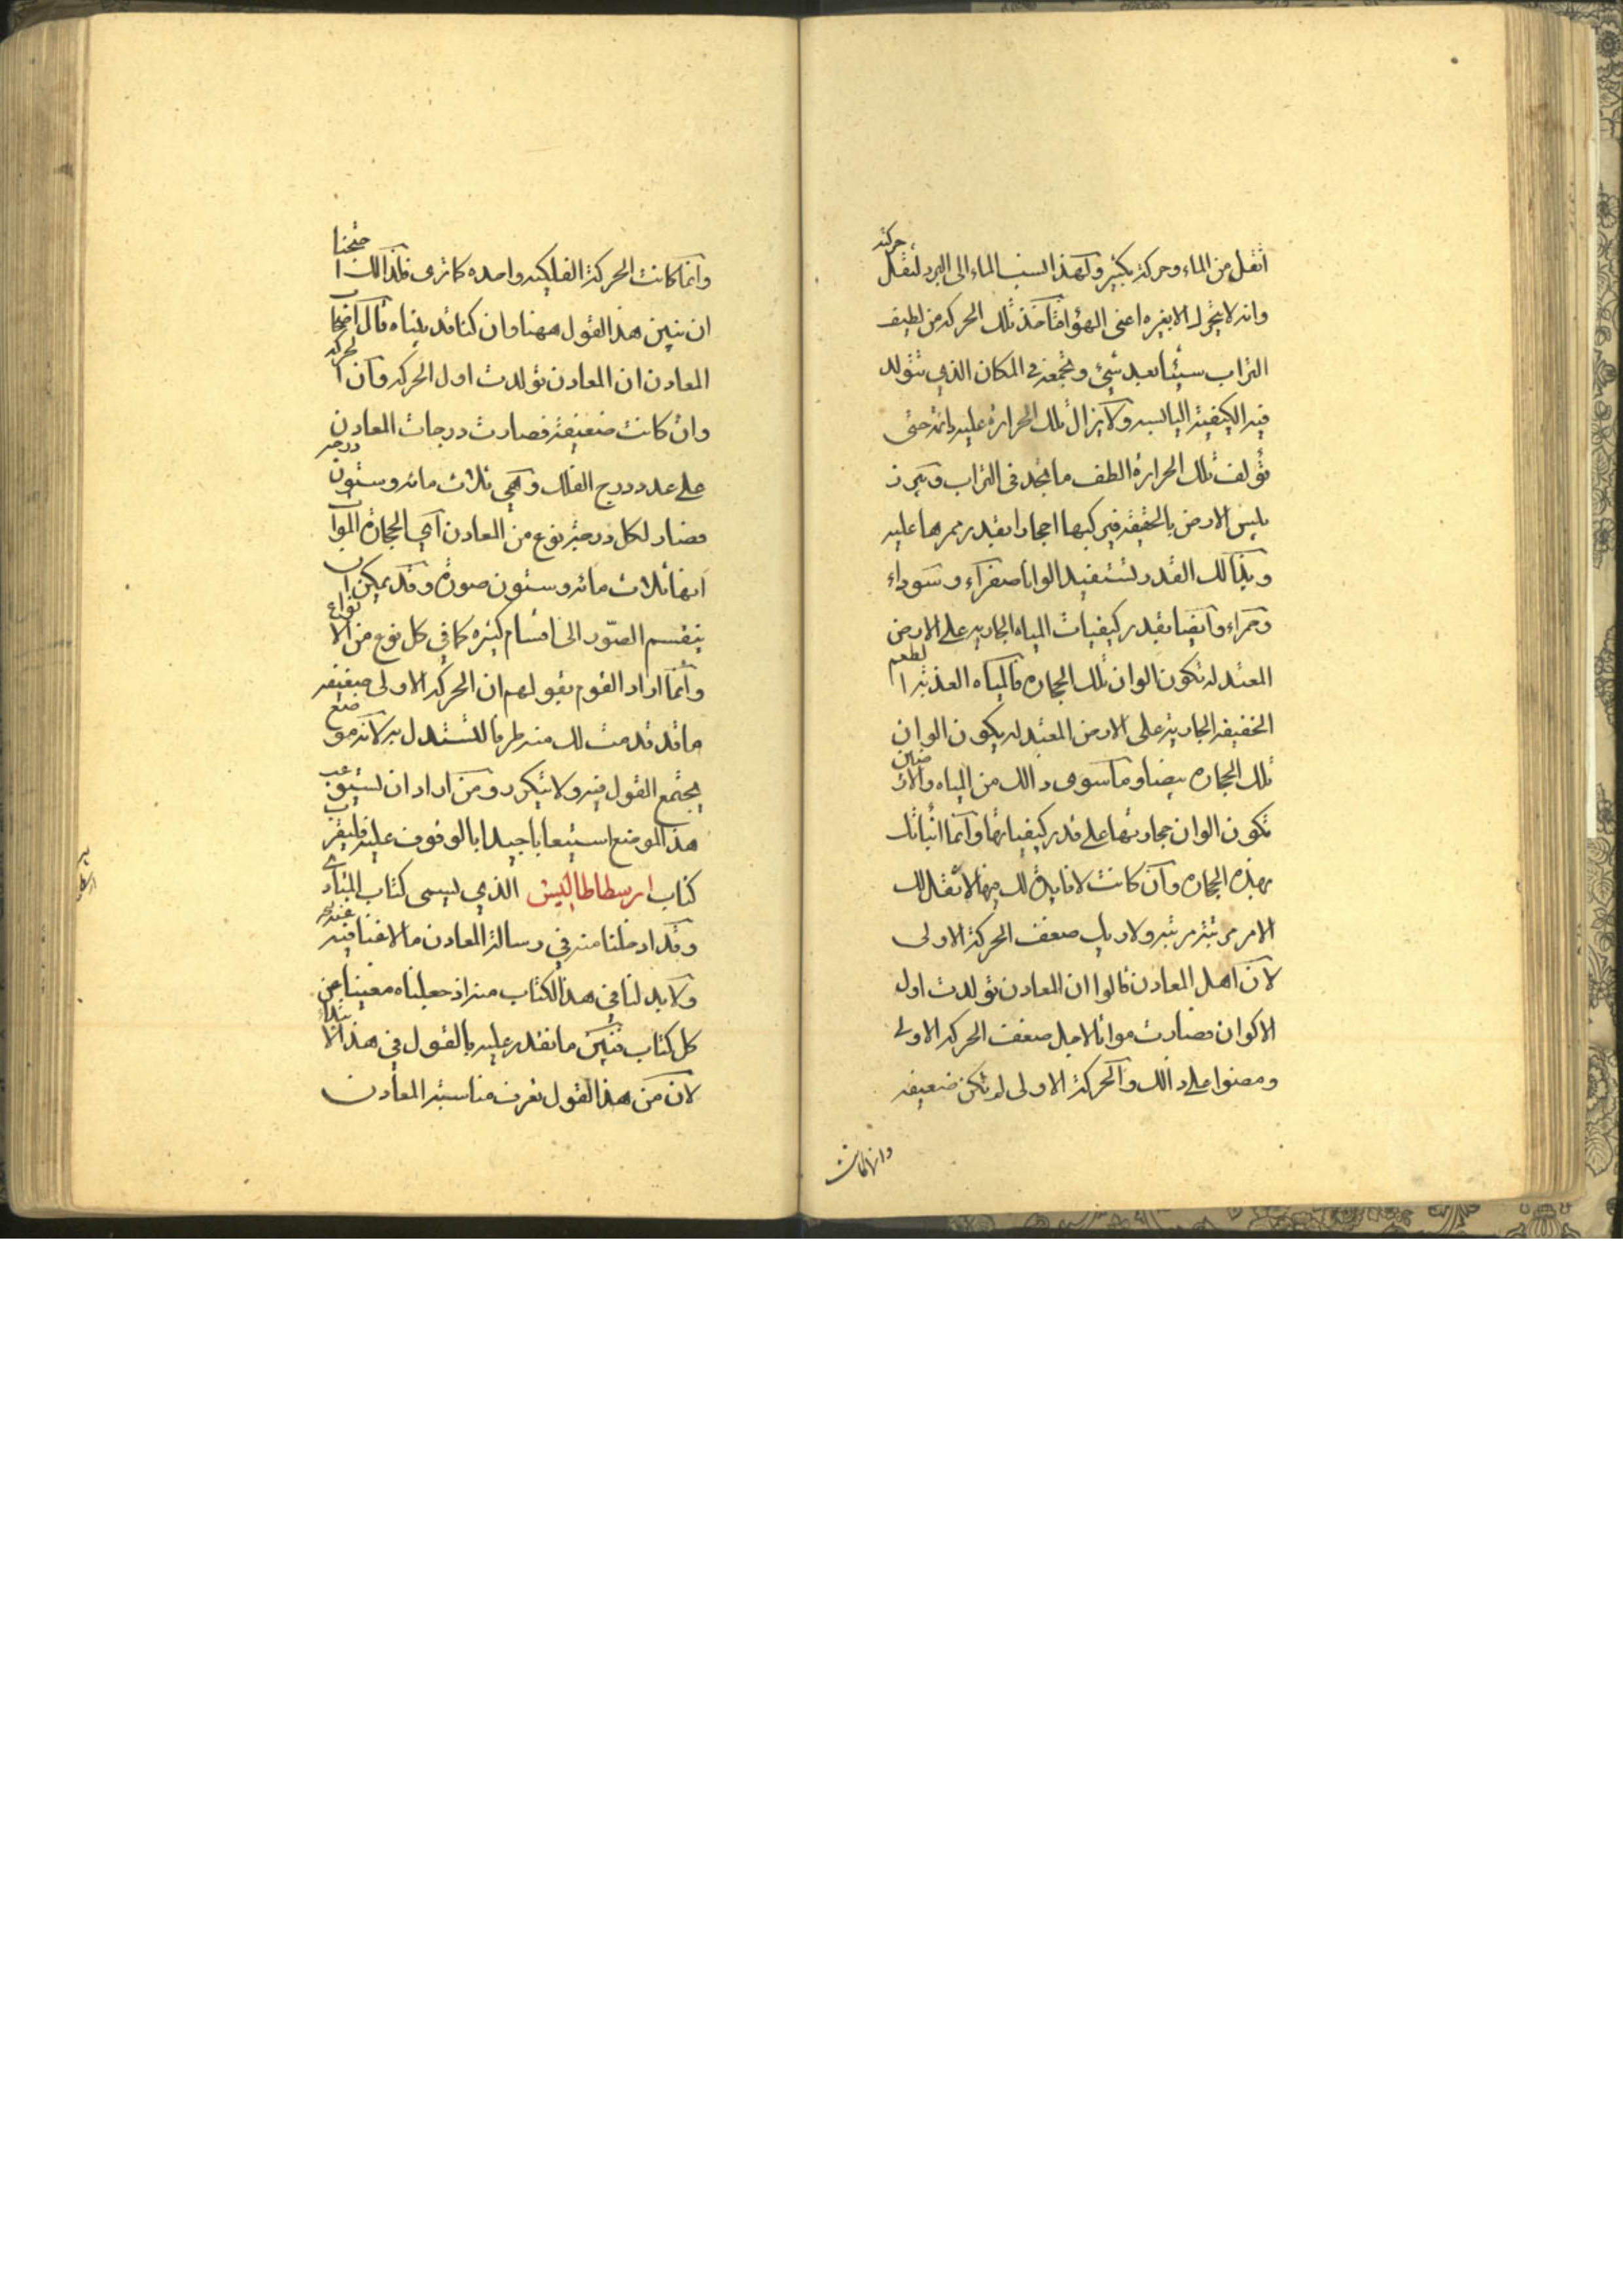 اثقل من الماء وحركته بكثير ولهذا السبب الماء الى البرد لثقل حركته
وانه لا يتحرك الا بغيره اعني الهوا فتاخذ تلك الحركه من لطيف
التراب سيئا بعد شيئ وتجمعه في المكان الذي تتولد
فيه الكيفيه اليابسه ولا يزال تلك الحراره عليه دائمة حتى
تؤلف تلك الحرارة الطف ما تجد في التراب
يليس الارض بالحقيقه فيركبها احجارا بقدر ممرها عليه
وبذالك القدر تستفيد الوانا صفراء وسوداء
وحمراء وايضا بقدر كيفيات المياه الجاريه على الارض
المعتدله تكون الوان تلك الحجاره فالمياه العذبة الطعم
الخفيفه الجارية على الارض المعتدله يكون الوان
تلك الحجاره بيضا وما سوى ذالك من المياه والارضين
تكون الوان حجارتها على قدر كيفياتها وانما انباتك
بهذه الحجاره وان كانت لا فايدة لك فيها لانقلك
الامر مرتبة مرتبه ولاريك ضعف الحركة الاولى
لان اهل المعادن قالوا ان المعادن تولدت اول
الاكوان فصارت مواتا لاجل ضعف الحركه الاولى
ومضوا على ذالك والحركة الاولى لم تكن ضعيفه
وانما كانت
وانما كانت الحركة الفلكيه واحده كما ترى فلذالك احتجنا
ان نبين هذا القول ههنا وان كنا قد بيناه قال اصحاب
المعادن ان المعادن تولدت اول الحركه وان الحركه
وان كانت ضعيفة فصارت درجات المعادن
على عدد درج الفلك وهي ثلاث مائه وستون درجه
فصار لكل درجة نوع من المعادن اي الحجارة الموات
انها ثلاث مائه وستون صورة وقد يمكن ان
ينقسم الصور الى اقسام كثيره كما في كل نوع من الانواع
وانما اراد القوم بقولهم ان الحركه الاولى ضعيفه
ما قد قدمت لك منه طرفا لتستدل به لانه موضع
يجتمع القول فيه ولا يتكرر ومن اراد ان يستوعب
هذا الموضع استيعابا جيدا بالوقوف عليه فليقرب
كتاب ارسطاطاليس الذي يسمى كتاب
وقد ادخلنا منه في رسالة المعادن ما لا غنا فيه عنه
ولا بد لنا في هذا الكتاب منه اذ جعلناه مغنيا من
كل كتاب فنبين ما نقدر عليه بالقول في هذا الابتداء
لان من هذا القول نعرف مناسبة المعادن